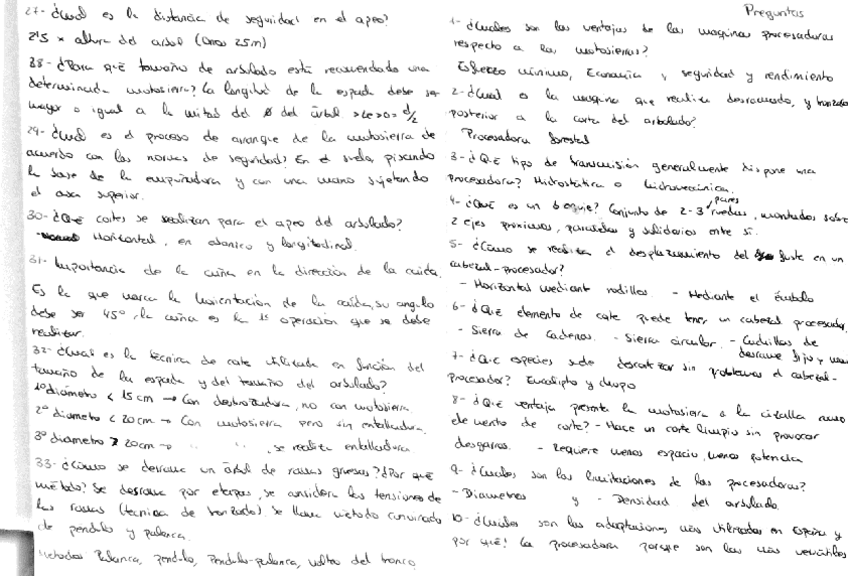 27- ¿Cual es la distancia de seguridad en el apeo?
2'5 x altura del arbol (unos 25m)
28- ¿Para qué tamaño de arbolado está recomendado una
determinada motosierra? La longitud de la espada debe ser
mayor o igual a la mitad del ø del árbol d/2
29- ¿Cual es el proceso de arranque de la motosierra de
acuerdo con las normas de seguridad? En el suelo, pisando
la base de la empuñadura y con una mano sujetando
el asa superior.
30- ¿Qué cortes se realizan para el apeo del arbolado?
Horizontal, en abanico y longitudinal.
31- Importancia de la cuña en la dirección de la caida.
Es la que marca la orientación de la caida, su angulo
debe ser 45º, la cuña es la 1ª operación que se debe
realizar.
32- ¿Cual es la técnica de corte utilizada en función del
tamaño de la espada y del tamaño del arbolado?
1º diámetro < 15 cm → Con desbrozadora, no con motosierra
2º diametro < 20cm → Con motosierra pero sin entalladura.
3º diametro > 20cm → " " , se realiza entalladura
33- ¿Cómo se desrama un árbol de ramas gruesas? ¿Por qué
método? Se desrama por etapas, se considera las tensiones de
las ramas (tecnica de tronzado) se llama método combinado
de pendulo y palanca.
Metodos: Palanca, pendulo, Pendulo-palanca, volteo del tronco
Preguntas
1- ¿Cuales son las ventajas de las maquinas procesadoras
respecto a las motosierras?
Esfuerzo mínimo, Economia y seguridad y rendimiento
2- ¿Cual es la maquina que realiza desramado, y tronzado
posterior a la corta del arbolado?
Procesadora forestal
3- ¿Qué tipo de transmisión generalmente dispone una
procesadora? Hidrostática o hidromecánica.
4- ¿Qué es un bogie? Conjunto de 2-3 pares ruedas, montados sobre
2 ejes proximos, paralelos y solidarios entre sí.
5- ¿Cómo se realiza el desplazamiento del fuste en un
cabezal-procesador?
- Horizontal mediant rodillos. - Mediante el émbolo
6- ¿Qué elemento de corte puede tener un cabezal procesador
- Sierra de Cadenas. - Sierra circular. - Cuchillas de
desrame fijo y
7- ¿Que especies suele descortezar sin problemas el cabezal-
procesador? Eucalipto y chopo
8- ¿Qué ventaja presenta la motosierra a la cizalla como
elemento de corte? - Hace un corte limpio sin provocar
desgarros. - Requiere menos espacio, menos potencia
9- ¿Cuales son las limitaciones de las procesadoras?
- Diametros y - Densidad del arbolado.
10- ¿Cuáles son las adaptaciones más utilizadas en España y
por qué? La procesadora porque son las más versátiles